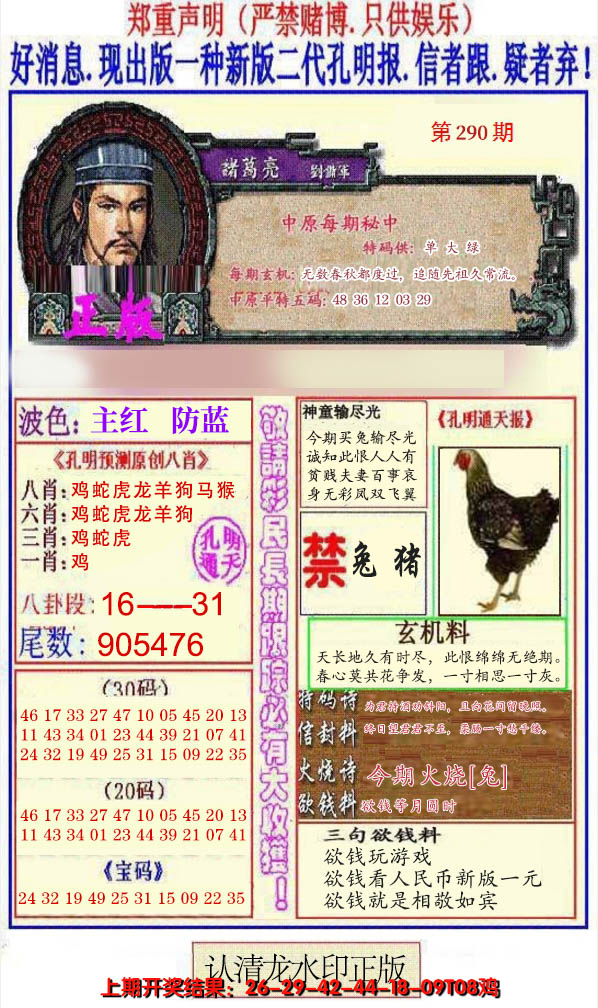 郑重声明（严禁赌博.只供娱乐）
好消息.现出版一种新版二代孔明报.信者跟.疑者弃！
第 290 期
諸葛亮 劉備軍
中原每期秘中
特码供：单 大 绿
每期玄机：无数春秋都度过，追随先祖久常流。
中原平特五码：48 36 12 03 29
正版
波色：主红 防蓝
《孔明预测原创八肖》
八肖：鸡蛇虎龙羊狗马猴
六肖：鸡蛇虎龙羊狗
三肖：鸡蛇虎
一肖：鸡
孔明
通天
八卦段：16-----31
尾数：905476
（30码）
46 17 33 27 47 10 05 45 20 13
11 43 34 01 23 44 39 21 07 41
24 32 19 49 25 31 15 09 22 35
（20码）
46 17 33 27 47 10 05 45 20 13
11 43 34 01 23 44 39 21 07 41
《宝码》
24 32 19 49 25 31 15 09 22 35
敬請彩民長期跟踪必有大收獲！
神童输尽光
今期买兔输尽光
诚知此恨人人有
贫贱夫妻百事哀
身无彩凤双飞翼
《孔明通天报》
禁 兔 猪
玄机料
天长地久有时尽，此恨绵绵无绝期。
春心莫共花争发，一寸相思一寸灰。
特码诗
为君持酒劝斜阳，且向花间留晚照。
信封料
终日望君君不至，举肠一寸愁千缘。
火烧诗
今期火烧[兔]
欲钱料
欲钱等月圆时
三句欲钱料
欲钱玩游戏
欲钱看人民币新版一元
欲钱就是相敬如宾
认清龙水印正版
上期开奖结果：26-29-42-44-18-09T08鸡